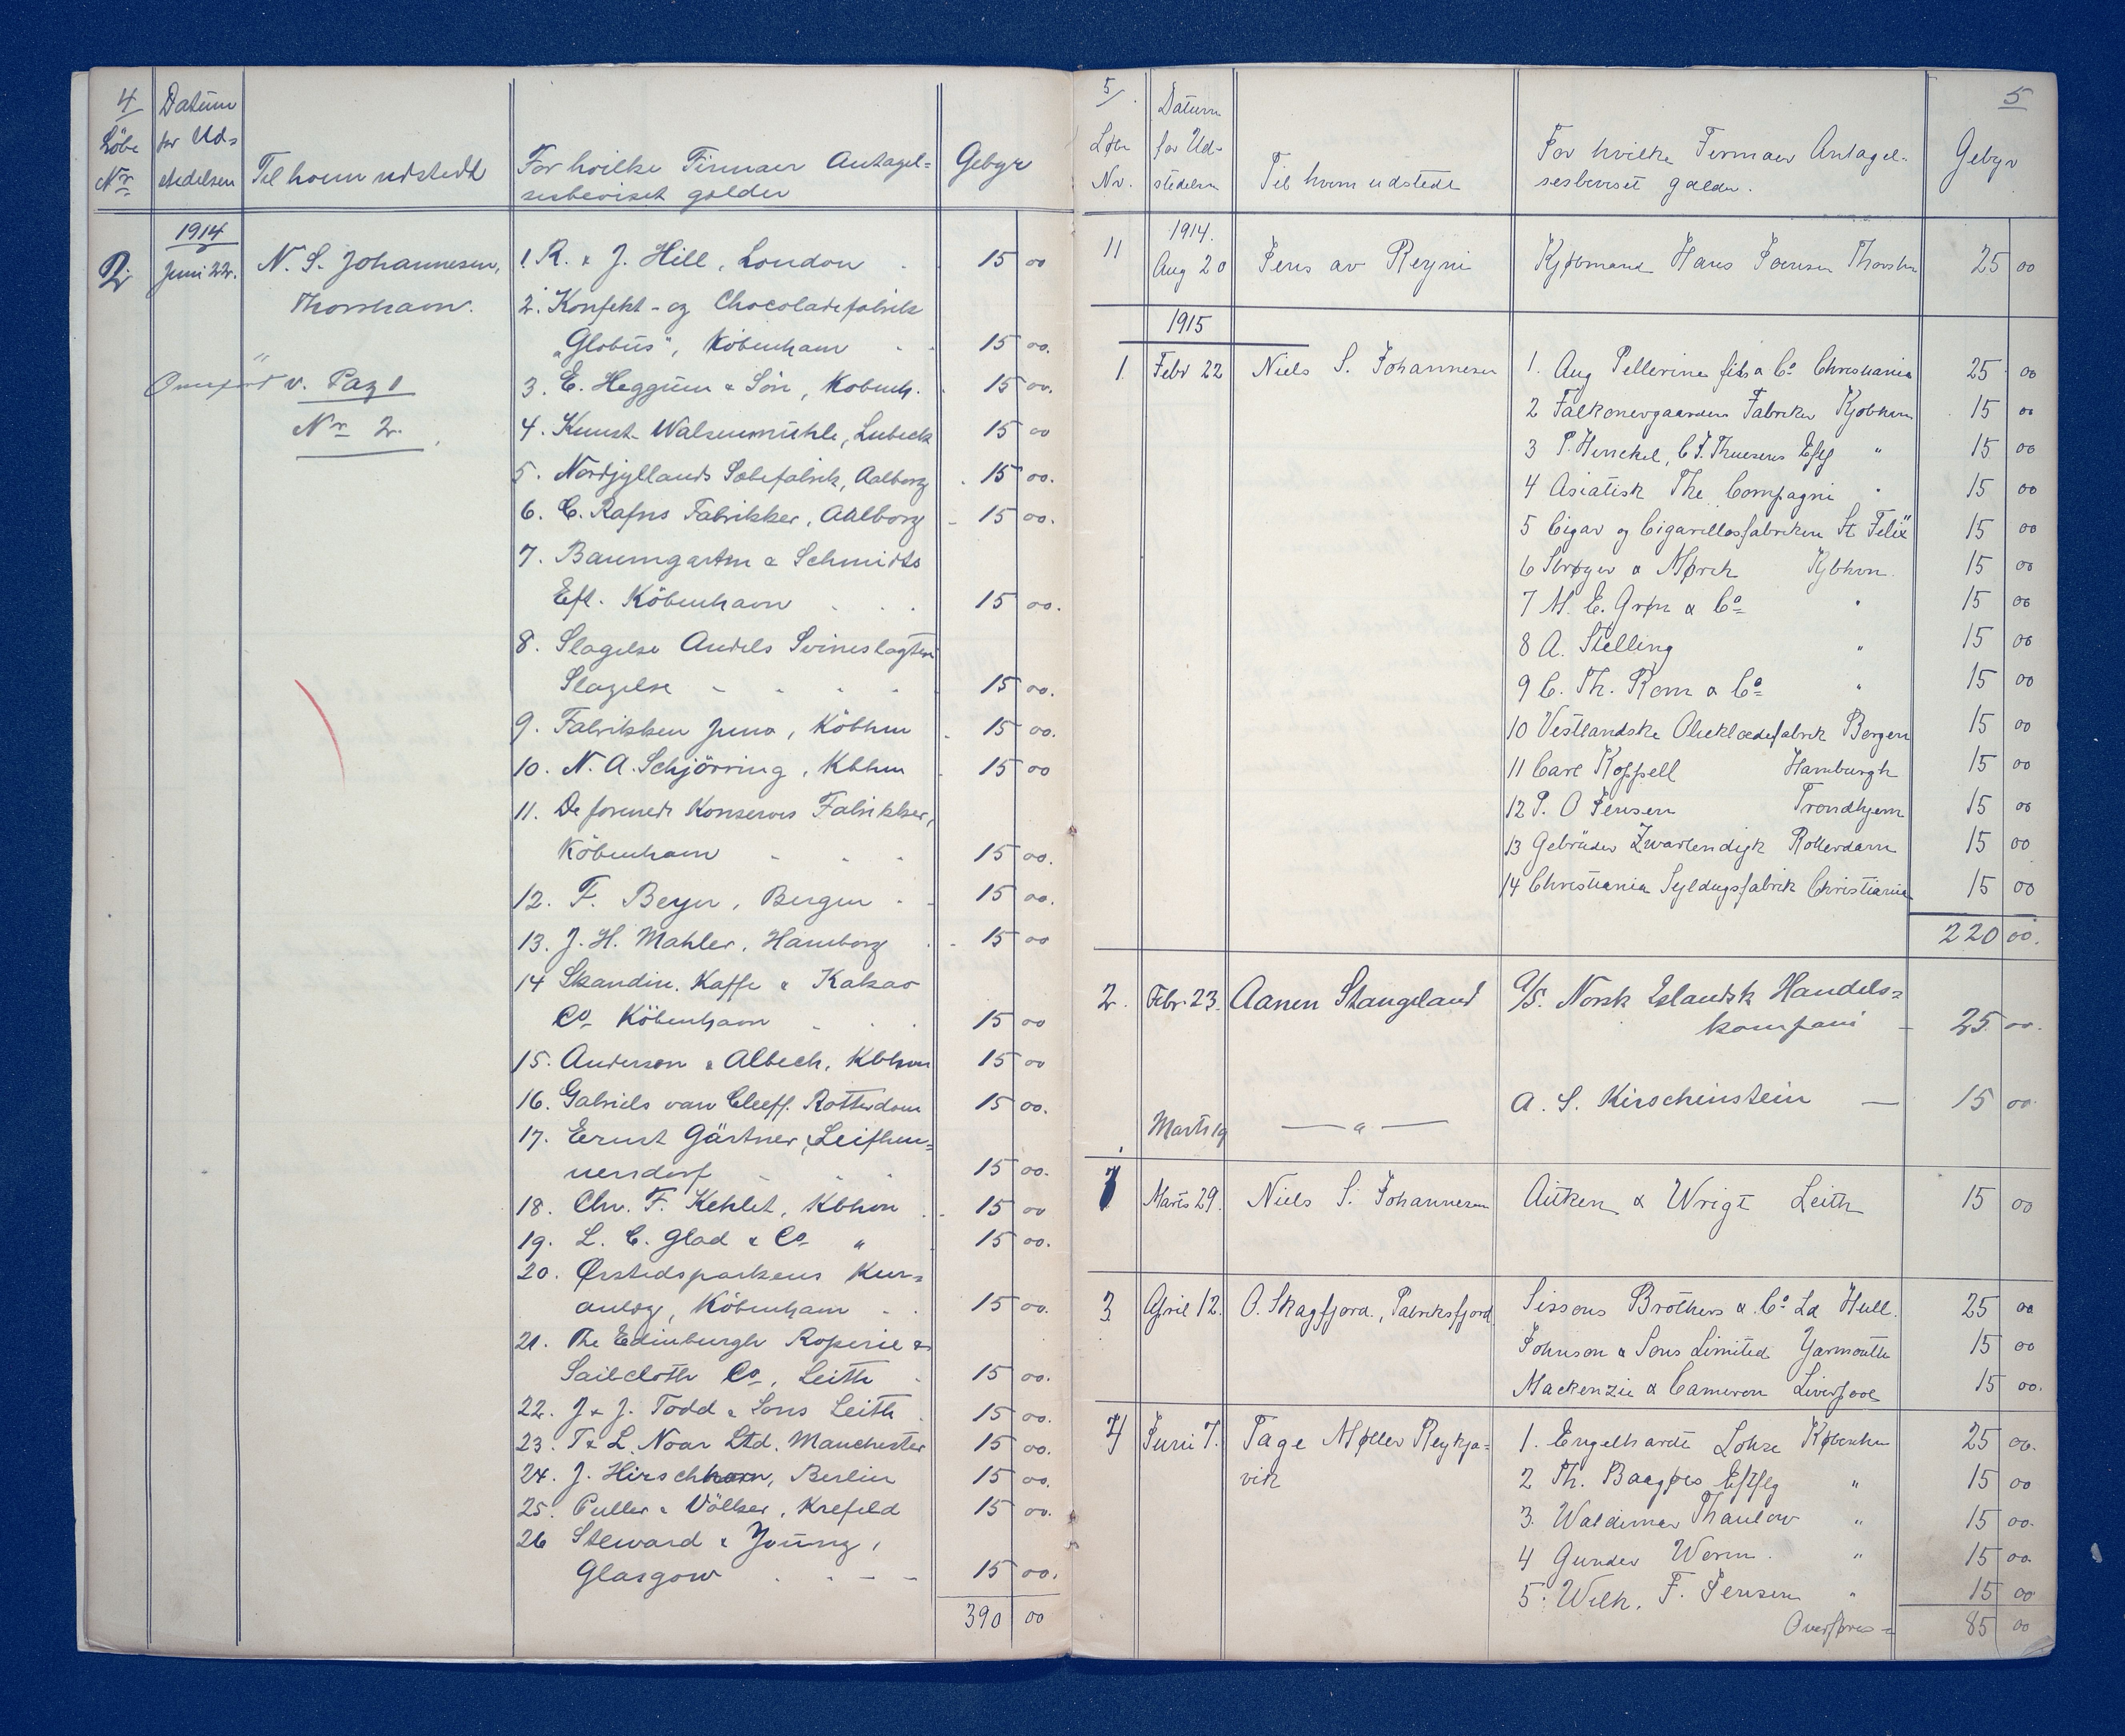 4
Datum
Löbe for Ud=
Nr. stedelsen Til hvem udstedt For hvilke Firmaer Antagel= Gebyr
sesbeviset gælder
1914
2. Juni 22. N. S. Johannesen, 1. R. & J. Hill, London 15 00
Thorshavn. 2. Konfekt- og Chocoladefabrik
„Globus", Köbenhavn 15 00.
v. Pag 1 3. E. Heggum & Sön, Kobenh. 15 00.
Nr. 2. 4. Kunst-Walsenmühle, Lubeck 15 00
5. Nordjyllands Sæbefabrik, Aalborg 15 00.
6. C. Rafns Fabrikker, Aalborg 15 00.
7. Baumgarten & Schmidts
Eft. Köbenhavn 15 00.
8. Slagelse Andels Svineslagteri
Slagelse 15 00.
9. Fabrikken Juno, Köbhvn 15 00.
10. N. A. Schjörring, Kbhvn 15 00
11. De forenede Konserves Fabrikker,
Köbenhavn 15 00.
12. F. Beyer, Bergen 15 00.
13. J. H. Mahler, Hamborg 15 00
14 Skandin. Kaffe & Kakao
Co Köbenhavn 15 00
15. Anderson & Albech, Kbhvn 15 00
16. Gabriels van Cleeff. Rotterdam 15 00.
17. Ernst Gärtner, Leifhen=
nersdorf 15 00.
18. Chr. F. Kehlet, Kbhvn 15 00
19. L. C. Glad & Co " 15 00.
20. Ørstedsparkens Kur=
anlæg, Köbenhavn 15 00.
21. The Edinburgh Roperie &
Sailcloth Co, Leith 15 00.
22. J & J. Todd & Sons Leith 15 00.
23. T & L. Noar Ltd. Manchester 15 00.
24. J. Hirschhorn, Berlin 15 00.
25. Puller & Völker, Krefeld 15 00.
26 Steward & Young,
Glasgow 15 00.
390 00
5/. 5
Datum
Løbe for Ud- For hvilke Firmaer Antagel- Gebyr
Nr. stedelsen Til hvem udstedt sesbeviset gælder.
1914.
11 Aug 20 Jens av Reyni Kjøbmand Hans Joensen Thorshn 25 00
1915
1. Febr 22 Niels S. Johannesen 1. Aug Pellerine fils & Co Christiania 25 00
2 Falkonergaardens Fabriker Kjobhvn 15 00
3 P. Henckel, C. J. Thuesens Eftf " 15 00
4 Asiatisk The Compagni " 15 00
5 Cigar og Cigarillosfabriken St Felix 15 00
6 Strøyer & Mørch Kjbhvn. 15 00
7 M. E. Grøn & Co " 15 00
8 A. Stelling " 15 00
9 C. Th. Rom & Co " 15 00
10 Vestlandske Olieklædefabrik Bergen 15 00
11 Carl Koppell Hamburgh 15 00
12 P. O Jensen Trondhjem 15 00
13 Gebrüder Zwartendigk Rotterdam 15 00
14 Christiania Syltdugsfabrik Christiania 15 00
220 00.
2. Febr. 23. Aanen Stangeland A/S. Norsk Islandsk Handels=
kompani 25 00.
A. S. Kirscheinstein — 15 00.
Marts 19 — " —
Marts 29. Niels S. Johannesen Aitken & Wrigt Leith 15 00
3. April 12. O. Skagfjord., Patriksfjord Sissons Brothers & Co Ld Hull. 25 00
Johnson & Sons Limited Yarmouth 15 00
Mackenzie & Cameron Liverpool 15 00.
4 Juni 7. Tage Møller Reykja= 1. Engelhardt Lohse Københn 25 00.
vik 2 Th. Baagøes Eftflg " 15 00
3. Waldemar Thaulow " 15 00.
4 Gunder Worm. " 15 00.
5. Wilh. F. Jensen " 15 00
Overføres = 85 00